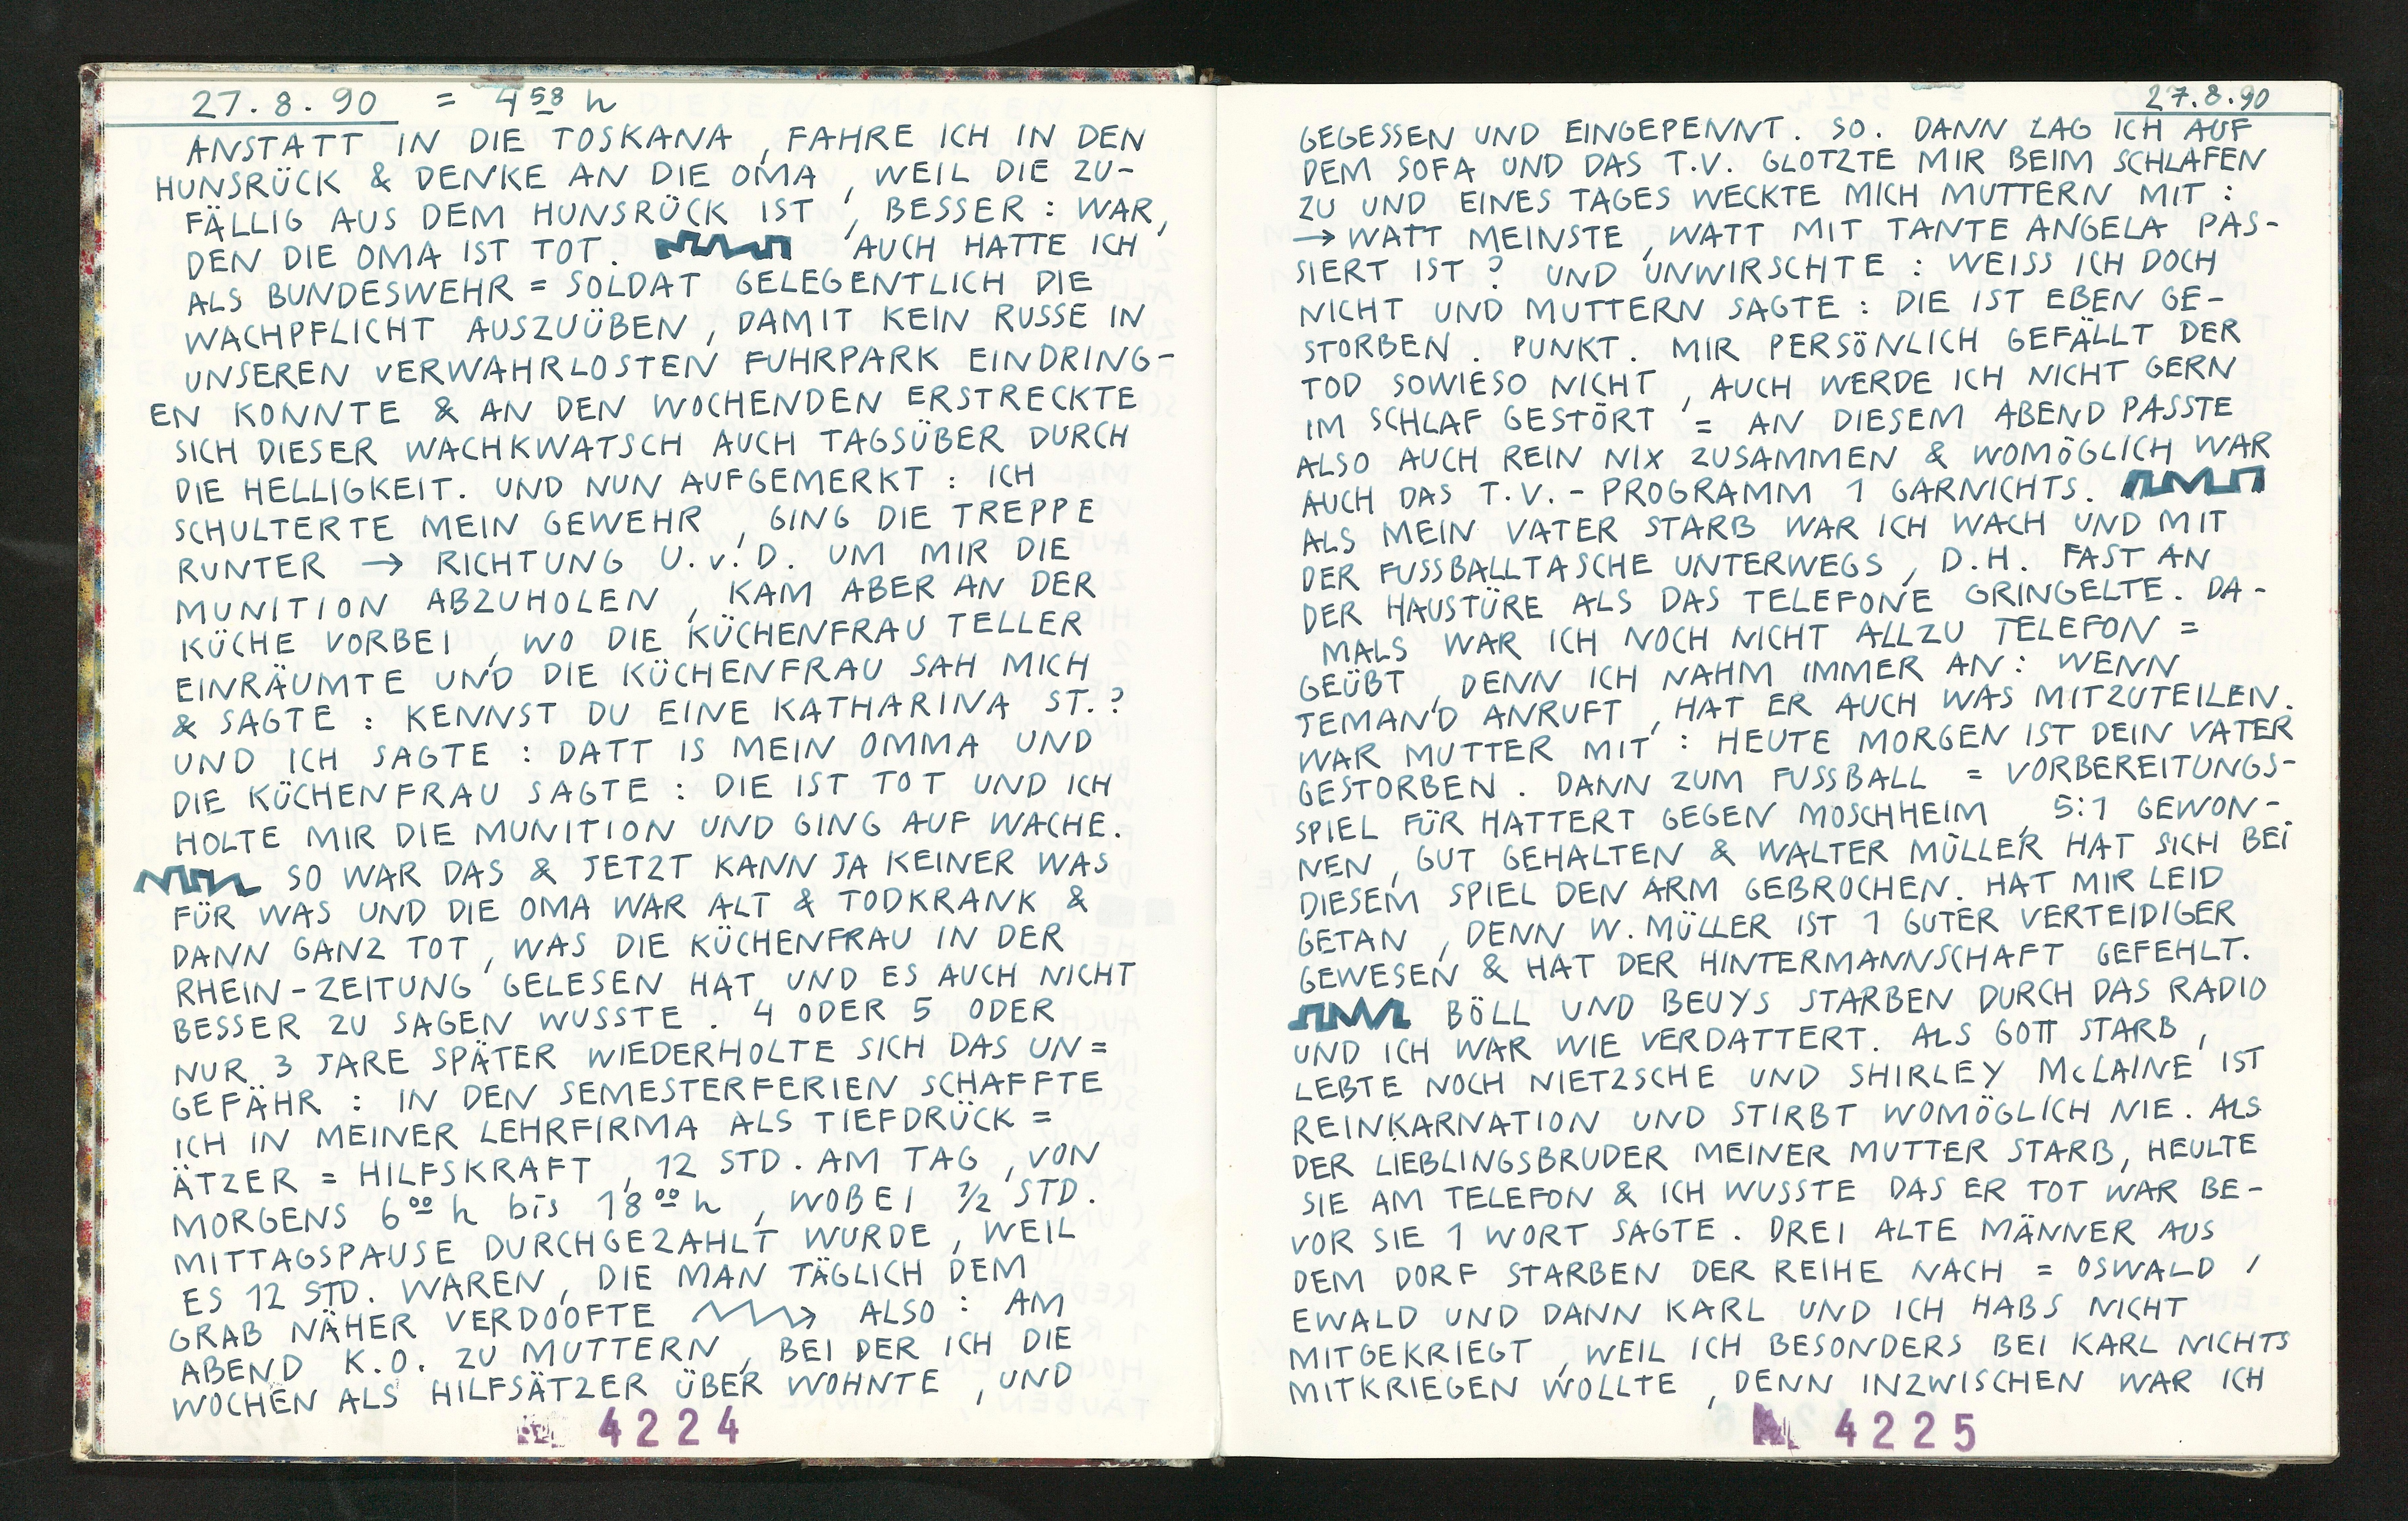 27.8.90 = 4 58 h
ANSTATT IN DIE TOSKANA, FAHRE ICH IN DEN
HUNSRÜCK & DENKE AN DIE OMA, WEIL DIE ZU-
FÄLLIG AUS DEM HUNSRÜCK IST, BESSER: WAR,
DEN DIE OMA IST TOT. AUCH HATTE ICH
ALS BUNDESWEHR=SOLDAT GELEGENTLICH DIE
WACHPFLICHT AUSZUÜBEN, DAMIT KEIN RUSSE IN
UNSEREN VERWAHRLOSTEN FUHRPARK EINDRING-
EN KONNTE & AN DEN WOCHENDEN ERSTRECKTE
SICH DIESER WACHKWATSCH AUCH TAGSÜBER DURCH
DIE HELLIGKEIT. UND NUN AUFGEMERKT: ICH
SCHULTERTE MEIN GEWEHR, GING DIE TREPPE
RUNTER → RICHTUNG U.v.D. UM MIR DIE
MUNITION ABZUHOLEN, KAM ABER AN DER
KÜCHE VORBEI, WO DIE KÜCHENFRAU TELLER
EINRÄUMTE UND DIE KÜCHENFRAU SAH MICH
& SAGTE: KENNST DU EINE KATHARINA ST.?
UND ICH SAGTE: DATT IS MEIN OMMA UND
DIE KÜCHENFRAU SAGTE: DIE IST TOT UND ICH
HOLTE MIR DIE MUNITION UND GING AUF WACHE.
SO WAR DAS & JETZT KANN JA KEINER WAS
FÜR WAS UND DIE OMA WAR ALT & TODKRANK &
DANN GANZ TOT, WAS DIE KÜCHENFRAU IN DER
RHEIN-ZEITUNG GELESEN HAT UND ES AUCH NICHT
BESSER ZU SAGEN WUSSTE. 4 ODER 5 ODER
NUR 3 JARE SPÄTER WIEDERHOLTE SICH DAS UN=
GEFÄHR: IN DEN SEMESTERFERIEN SCHAFFTE
ICH IN MEINER LEHRFIRMA ALS TIEFDRÜCK=
ÄTZER=HILFSKRAFT, 12 STD. AM TAG, VON
MORGENS 6 00 h bis 18 00 h, WOBEI 1/2 STD.
MITTAGSPAUSE DURCHGEZAHLT WURDE, WEIL
ES 12 STD. WAREN, DIE MAN TÄGLICH DEM
GRAB NÄHER VERDOOFTE → ALSO: AM
ABEND K.O. ZU MUTTERN, BEI DER ICH DIE
WOCHEN ALS HILFSÄTZER ÜBER WOHNTE, UND
4224
27.8.90
GEGESSEN UND EINGEPENNT. SO. DANN LAG ICH AUF
DEM SOFA UND DAS T.V. GLOTZTE MIR BEIM SCHLAFEN
ZU UND EINES TAGES WECKTE MICH MUTTERN MIT:
→ WATT MEINSTE, WATT MIT TANTE ANGELA PAS-
SIERT IST? UND UNWIRSCHTE: WEISS ICH DOCH
NICHT UND MUTTERN SAGTE: DIE IST EBEN GE-
STORBEN. PUNKT. MIR PERSÖNLICH GEFÄLLT DER
TOD SOWIESO NICHT, AUCH WERDE ICH NICHT GERN
IM SCHLAF GESTÖRT = AN DIESEM ABEND PASSTE
ALSO AUCH REIN NIX ZUSAMMEN & WOMÖGLICH WAR
AUCH DAS T.V.-PROGRAMM 1 GARNICHTS.
ALS MEIN VATER STARB WAR ICH WACH UND MIT
DER FUSSBALLTASCHE UNTERWEGS, D.H. FAST AN
DER HAUSTÜRE ALS DAS TELEFONE GRINGELTE. DA-
MALS WAR ICH NOCH NICHT ALLZU TELEFON=
GEÜBT, DENN ICH NAHM IMMER AN: WENN
JEMAND ANRUFT, HAT ER AUCH WAS MITZUTEILEN.
WAR MUTTER MIT: HEUTE MORGEN IST DEIN VATER
GESTORBEN. DANN ZUM FUSSBALL = VORBEREITUNGS-
SPIEL FÜR HATTERT GEGEN MOSCHHEIM, 5:1 GEWON-
NEN, GUT GEHALTEN & WALTER MÜLLER HAT SICH BEI
DIESEM SPIEL DEN ARM GEBROCHEN. HAT MIR LEID
GETAN, DENN W. MÜLLER IST 1 GUTER VERTEIDIGER
GEWESEN & HAT DER HINTERMANNSCHAFT GEFEHLT.
BÖLL UND BEUYS STARBEN DURCH DAS RADIO
UND ICH WAR WIE VERDATTERT. ALS GOTT STARB,
LEBTE NOCH NIETZSCHE UND SHIRLEY McLAINE IST
REINKARNATION UND STIRBT WOMÖGLICH NIE. ALS
DER LIEBLINGSBRUDER MEINER MUTTER STARB, HEULTE
SIE AM TELEFON & ICH WUSSTE DAS ER TOT WAR BE-
VOR SIE 1 WORT SAGTE. DREI ALTE MÄNNER AUS
DEM DORF STARBEN DER REIHE NACH = OSWALD,
EWALD UND DANN KARL UND ICH HABS NICHT
MITGEKRIEGT, WEIL ICH BESONDERS BEI KARL NICHTS
MITKRIEGEN WOLLTE, DENN INZWISCHEN WAR ICH
4225